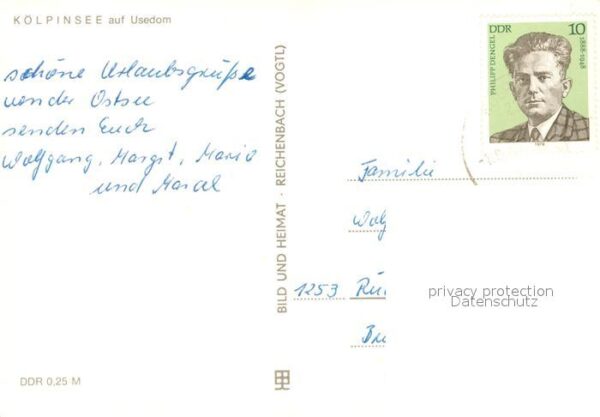 KÖLPINSEE auf Usedom
DDR 10
PHILIPP DENGEL 1888-1948
schöne Urlaubsgrüße
von der Ostsee
senden Euch
Wolfgang, Margit, Mario
und Marcel
BILD UND HEIMAT · REICHENBACH (VOGTL)
Familie
1253
privacy protection
Datenschutz
DDR 0,25 M